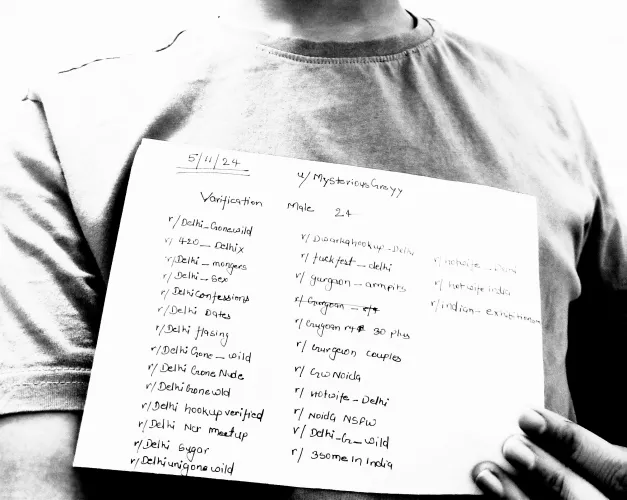 5/11/24
u/MysteriousGrayy
Varification Male 24
r/Delhi_Gonewild
r/420_Delhix
r/Delhi_mongers
r/Delhi_Sex
r/DelhiConfessions
r/Delhi Dates
r/Delhi flasing
r/Delhi Gone_wild
r/Delhi Gone Nude
r/DelhiGonewld
r/Delhi hookupverified
r/Delhi Ncr meetup
r/Delhi Sugar
r/Delhiunigonewild
r/Dwarkahookup_Delhi
r/fuckfest_delhi
r/gurgaon_armpits
r/Gurgaon
r/Gurgaon 30 plus
r/Gurgaon couples
r/GW Noida
r/Hotwife-Delhi
r/Noida NSFW
r/Delhi-G_wild
r/3some In India
r/hotwife
r/hotwife india
r/indian-exhibitionism